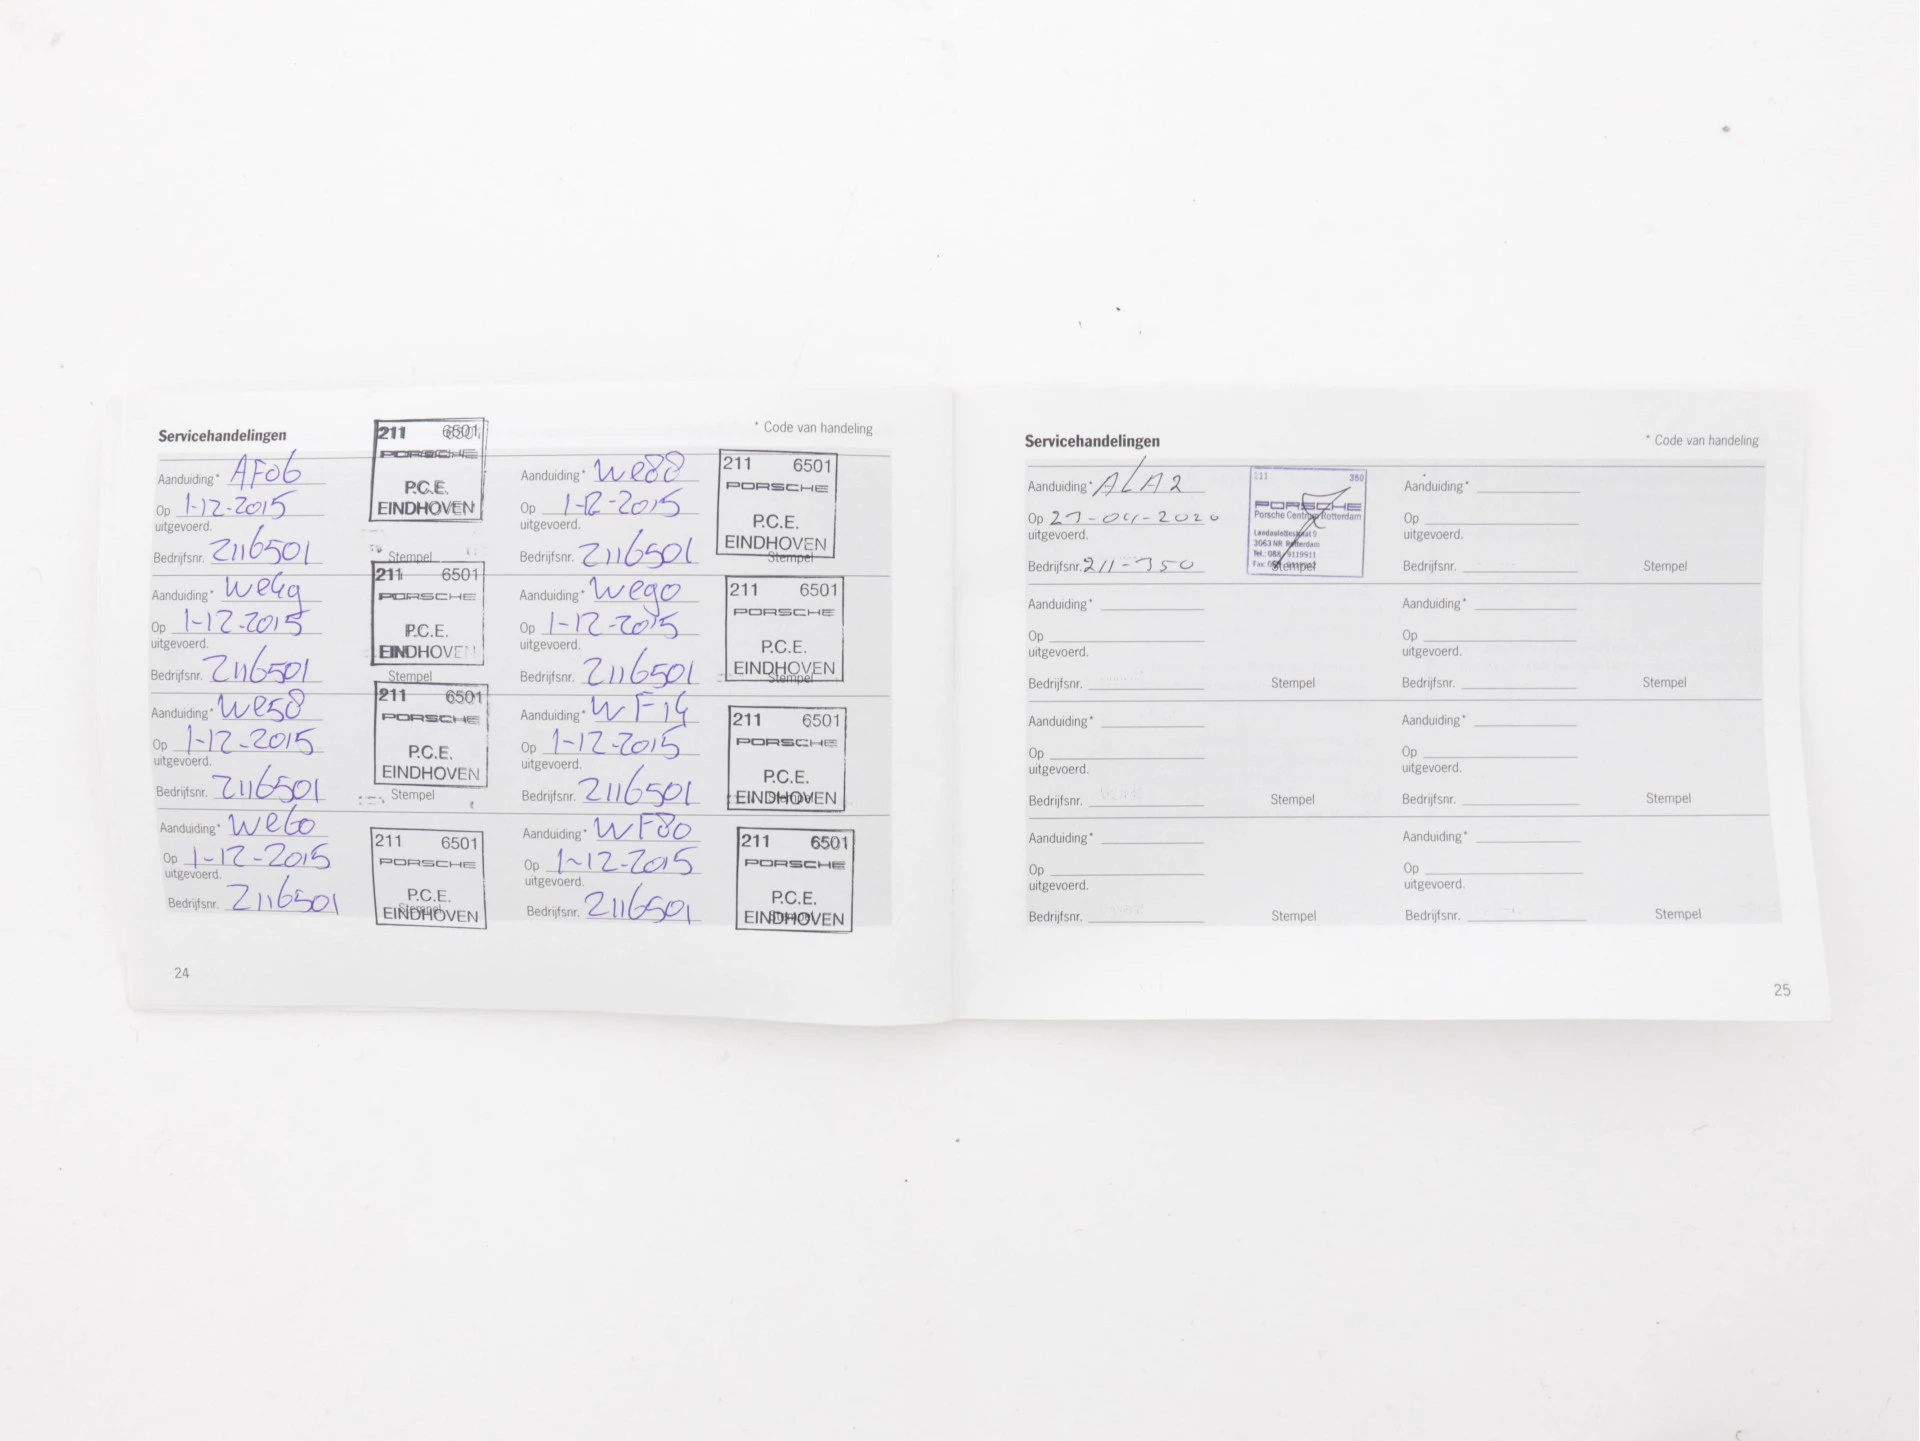 Servicehandelingen
* Code van handeling
Aanduiding* AF06
Op 1-12-2015
uitgevoerd.
Bedrijfsnr. 2116501
Stempel
211 6501
PORSCHE
P.C.E.
EINDHOVEN
Aanduiding* We88
Op 1-12-2015
uitgevoerd.
Bedrijfsnr. 2116501
Stempel
211 6501
PORSCHE
P.C.E.
EINDHOVEN
Aanduiding* We4g
Op 1-12-2015
uitgevoerd.
Bedrijfsnr. 2116501
Stempel
211 6501
PORSCHE
P.C.E.
EINDHOVEN
Aanduiding* Wego
Op 1-12-2015
uitgevoerd.
Bedrijfsnr. 2116501
Stempel
211 6501
PORSCHE
P.C.E.
EINDHOVEN
Aanduiding* We58
Op 1-12-2015
uitgevoerd.
Bedrijfsnr. 2116501
Stempel
211 6501
PORSCHE
P.C.E.
EINDHOVEN
Aanduiding* WF14
Op 1-12-2015
uitgevoerd.
Bedrijfsnr. 2116501
Stempel
211 6501
PORSCHE
P.C.E.
EINDHOVEN
Aanduiding* We60
Op 1-12-2015
uitgevoerd.
Bedrijfsnr. 2116501
Stempel
211 6501
PORSCHE
P.C.E.
EINDHOVEN
Aanduiding* WF80
Op 1-12-2015
uitgevoerd.
Bedrijfsnr. 2116501
Stempel
211 6501
PORSCHE
P.C.E.
EINDHOVEN
24
Servicehandelingen
* Code van handeling
Aanduiding* ALA2
Op 27-04-2020
uitgevoerd.
Bedrijfsnr. 211-350
Stempel
211 350
PORSCHE
Porsche Centrum Rotterdam
3063 NR Rotterdam
Tel.: 088 - 9119911
Aanduiding*
Op
uitgevoerd.
Bedrijfsnr.
Stempel
Aanduiding*
Op
uitgevoerd.
Bedrijfsnr.
Stempel
Aanduiding*
Op
uitgevoerd.
Bedrijfsnr.
Stempel
Aanduiding*
Op
uitgevoerd.
Bedrijfsnr.
Stempel
Aanduiding*
Op
uitgevoerd.
Bedrijfsnr.
Stempel
Aanduiding*
Op
uitgevoerd.
Bedrijfsnr.
Stempel
Aanduiding*
Op
uitgevoerd.
Bedrijfsnr.
Stempel
25